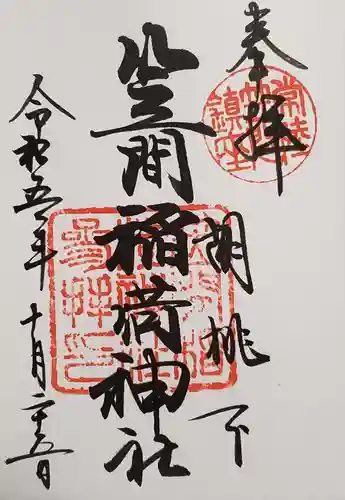 奉拝
胡桃下
笠間稲荷神社
令和五年十月二十五日